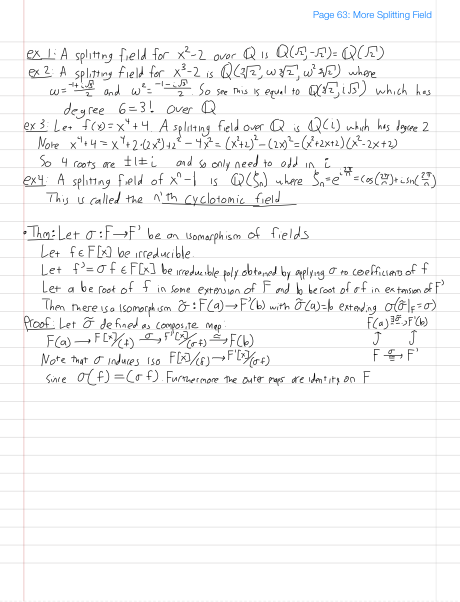 Page 63: More Splitting Field
ex 1: A splitting field for x²-2 over ℚ is ℚ(√2,-√2)=ℚ(√2)
ex 2: A splitting field for x³-2 is ℚ(∛2, ω∛2, ω²∛2) where
ω=(-1+i√3)/2 and ω²=(-1-i√3)/2. So see this is equal to ℚ(∛2,i√3) which has
degree 6=3! over ℚ
ex 3: Let f(x)=x⁴+4. A splitting field over ℚ is ℚ(i) which has degree 2
Note x⁴+4=x⁴+2·(2x²)+2²-4x²=(x²+2)²-(2x)²=(x²+2x+2)(x²-2x+2)
So 4 roots are ±1±i and so only need to add in i
ex 4: A splitting field of xⁿ-1 is ℚ(ζₙ) where ζₙ=e^(i2π/n)=cos(2π/n)+isin(2π/n)
This is called the n'th cyclotomic field
• Thm: Let σ:F→F' be an isomorphism of fields
Let f∈F[x] be irreducible
Let f'=σf∈F[x] be irreducible poly obtained by applying σ to coefficients of f
Let a be root of f in some extension of F and b be root of σf in extension of F'
Then there is a isomorphism σ̃:F(a)→F'(b) with σ̃(a)=b extending σ(σ̃|F=σ)
Proof: Let σ̃ defined as composite map: F(a) ∃σ̃→ F'(b)
F(a)→F[x]/(f) σ→ F'[x]/(σf) ≅→ F(b) ↑ ↑
Note that σ induces iso F[x]/(f)→F'[x]/(σf) F σ→≅ F'
since σ(f)=(σf) Furthermore the outer maps are identity on F